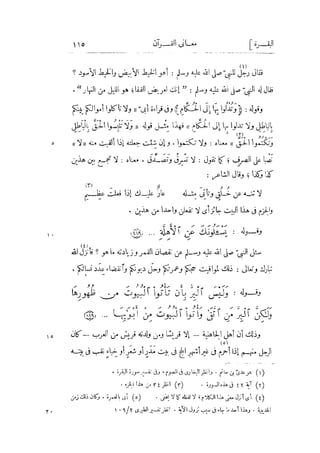 البقرة ] معانى القرآن ١١٥
فقال (١) للنبىّ صلى الله عليه وسلم : أهو الخيط الأبيض والخيط الأسود ؟
فقال له النبىّ صلى الله عليه وسلم : " إنك لعريض القفا؛ هو الليل من النهار " .
وقوله : ﴿ وَتُدْلُوا بِهَا إِلَى الْحُكَّامِ ﴾ وفى قراءة أُبىّ « ولا تأكلوا أموالكم بينكم
بالباطل ولا تدلوا بها إلى الحكام » فهذا مِثْل قوله « وَلَا تَلْبِسُوا الْحَقَّ بِالْبَاطِلِ
وَتَكْتُمُوا الْحَقَّ » معناه : ولا تكتموا . وإن شئت جعلته إذا ألقيت منه « لا » ٥
نَصْبا على الصرف ؛ كما تقول : لا تسرِقْ وتصدَّقَ . معناه : لا تجمع بين هذين
كذا وكذا ؛ وقال الشاعر :
لا تنه عن خلقٍ وتأتىَ مثله عار عليك إذا فعلت عظيم (٣)
والجزم فى هذا البيت جائز أى لا تفعلن واحدا من هذين .
وقوله : يَسْـَٔلُونَكَ عَنِ الْأَهِلَّةِ ... ١٠
سئل النبىّ صلى الله عليه وسلم عن نقصان القمر وزيادته ما هو ؟ فأنزل الله
تبارك وتعالى : ذلك لمواقيت حجكم وعمرتكم وحلّ ديونكم وانقضاء عِدَد نسائكم .
وقوله : وَلَيْسَ الْبِرُّ بِأَن تَأْتُوا الْبُيُوتَ مِن ظُهُورِهَا
وَلَكِنَّ الْبِرَّ مَنِ اتَّقَى وَأْتُوا الْبُيُوتَ مِنْ أَبْوَابِهَا ...
وذلك أن أهل الجاهلية — إلا قريشا ومن ولدته قريش من العرب — كان ١٥
الرجل منهم إذا أحرم (٥) فى غير أشهر الحج فى بيت مَدَر أو شعَر أو خِباء نقب فى بيته
(١) هو عدىّ بن حاتم . وانظر البخارى فى الصوم، وفى تفسير سورة البقرة .
(٢) آية ٤٢ من هذه السورة . (٣) انظر ٣٤ من هذا الجزء .